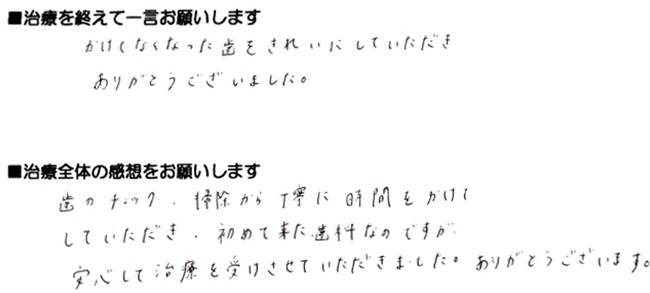 ■治療を終えて一言お願いします
かけてなくなった歯をきれいにしていただき
ありがとうございました。
■治療全体の感想をお願いします
歯のチェック、掃除から丁寧に時間をかけて
していただき、初めて来た歯科なのですが、
安心して治療を受けさせていただきました。ありがとうございます。